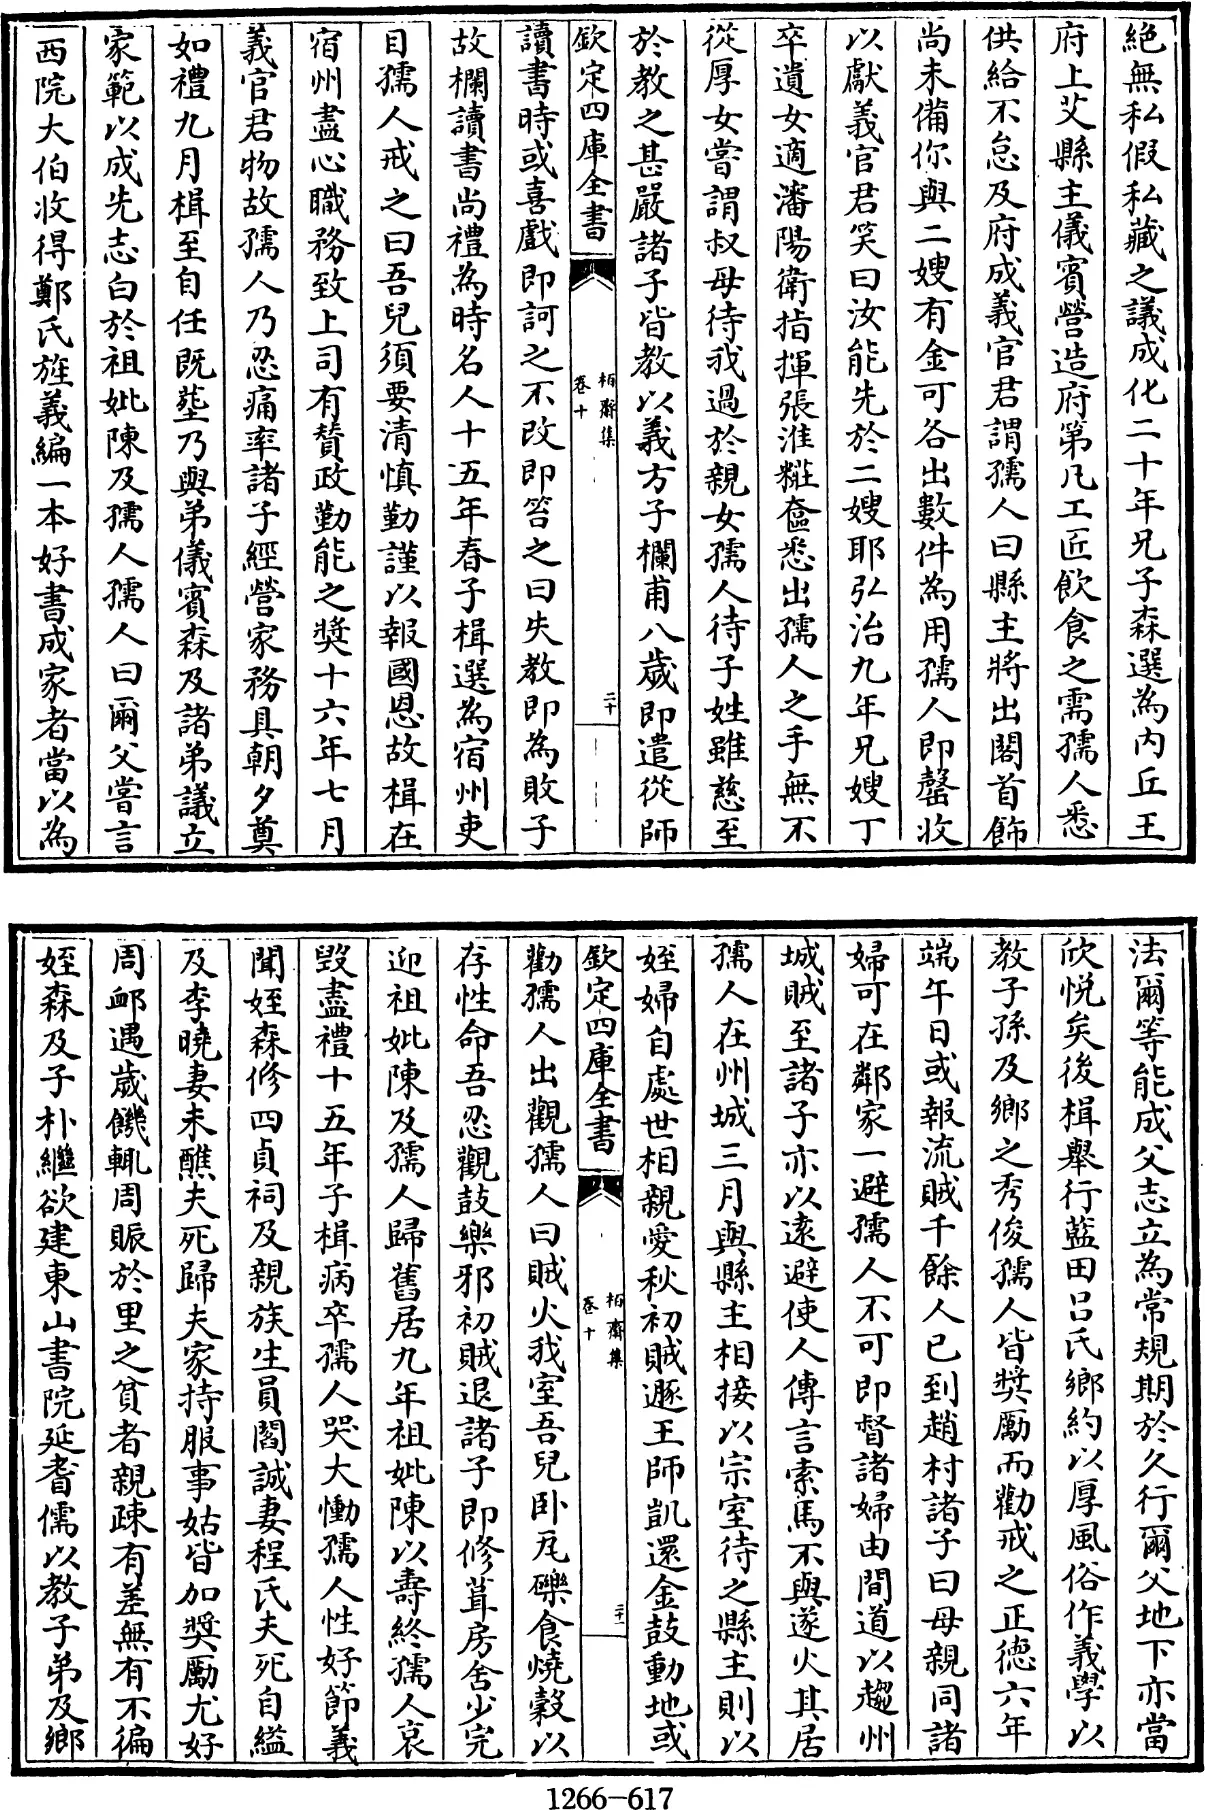 絶無私假私藏之議成化二十年兄子森選為內丘王
府上艾縣主儀賓營造府第凡工匠飲食之需孺人悉
供給不怠及府成義官君謂孺人曰縣主將出閣首飾
尚未備你與二嫂有金可各出數件為用孺人即罄收
以獻義官君笑曰汝能先於二嫂耶弘治九年兄嫂丁
卒遺女適瀋陽衛指揮張淮糚奩悉出孺人之手無不
從厚女嘗謂叔母待我過於親女孺人待子姓雖慈至
於教之甚嚴諸子皆教以義方子欄甫八歲即遣從師
欽定四庫全書
栢齋集
卷十
二十
讀書時或喜戲即訶之不改即笞之曰失教即為敗子
故欄讀書尚禮為時名人十五年春子楫選為宿州吏
目孺人戒之曰吾兒須要清慎勤謹以報國恩故楫在
宿州盡心職務致上司有賛政勤能之奬十六年七月
義官君物故孺人乃忍痛率諸子經營家務具朝夕奠
如禮九月楫至自任既塟乃與弟儀賓森及諸弟議立
家範以成先志白於祖妣陳及孺人孺人曰爾父嘗言
西院大伯收得鄭氏旌義編一本好書成家者當以為
法爾等能成父志立為常規期於久行爾父地下亦當
欣悅矣後楫舉行藍田呂氏鄉約以厚風俗作義學以
教子孫及鄉之秀俊孺人皆奬勵而勸戒之正德六年
端午日或報流賊千餘人已到趙村諸子曰母親同諸
婦可在鄰家一避孺人不可即督諸婦由間道以趨州
城賊至諸子亦以遠避使人傳言索馬不與遂火其居
孺人在州城三月與縣主相接以宗室待之縣主則以
姪婦自處世相親愛秋初賊遯王師凱還金鼓動地或
欽定四庫全書
栢齋集
卷十
二十一
勸孺人出觀孺人曰賊火我室吾兒卧瓦礫食燒穀以
存性命吾忍觀鼓樂邪初賊退諸子即修葺房舍少完
迎祖妣陳及孺人歸舊居九年祖妣陳以壽終孺人哀
毀盡禮十五年子楫病卒孺人哭大慟孺人性好節義
聞姪森修四貞祠及親族生員閻誠妻程氏夫死自縊
及李曉妻未醮夫死歸夫家持服事姑皆加奬勵尤好
周䘏遇歲饑輒周賑於里之貧者親疎有差無有不徧
姪森及子朴繼欲建東山書院延耆儒以教子弟及鄉
1266-617